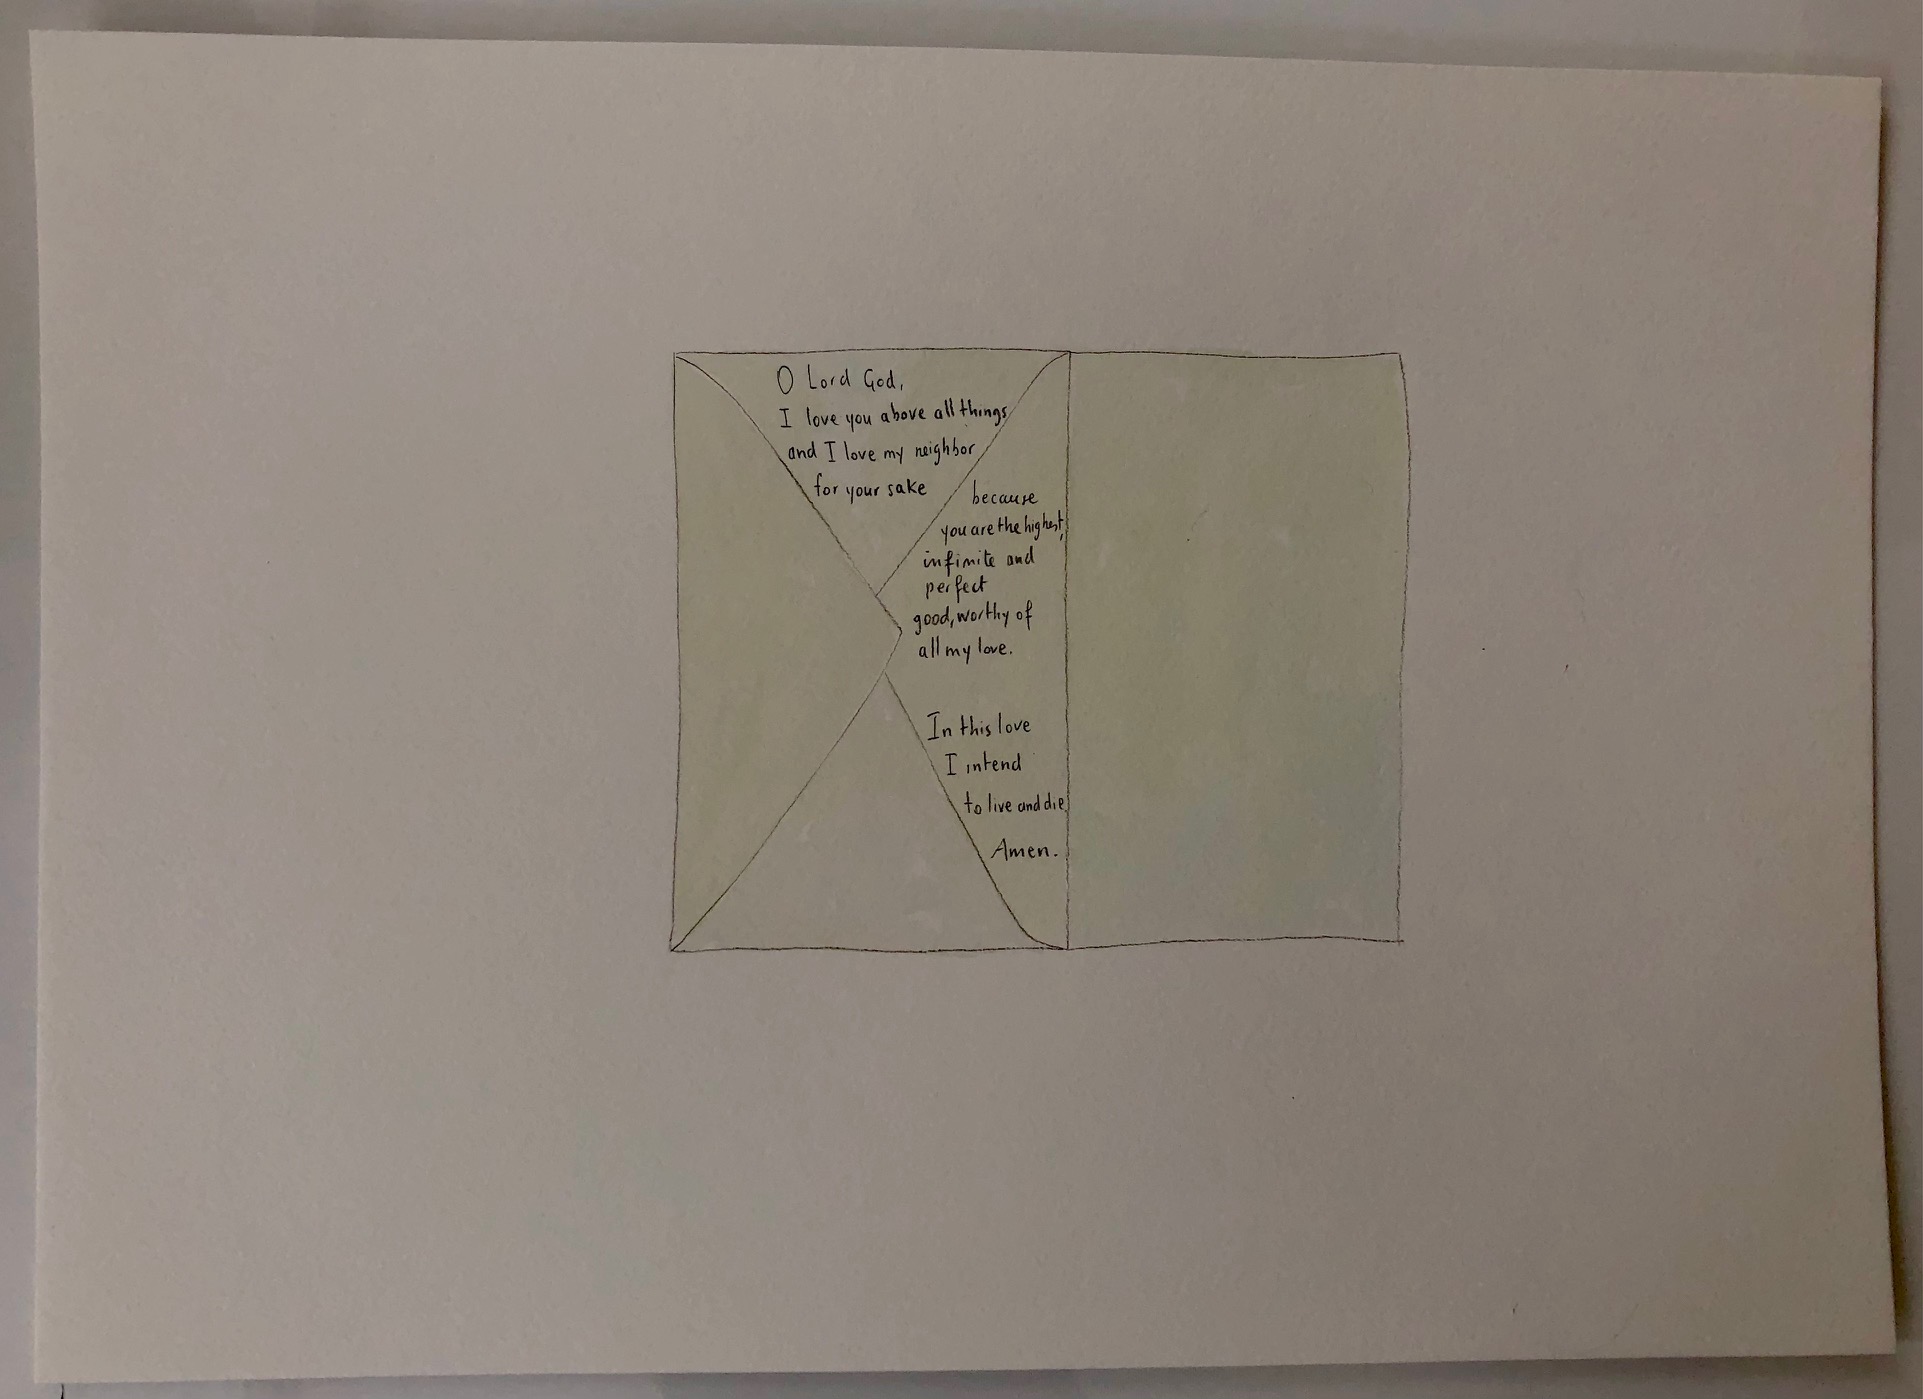 O Lord God,
I love you above all things
and I love my neighbor
for your sake
because
you are the highest,
infinite and
perfect
good, worthy of
all my love.
In this love
I intend
to live and die.
Amen.